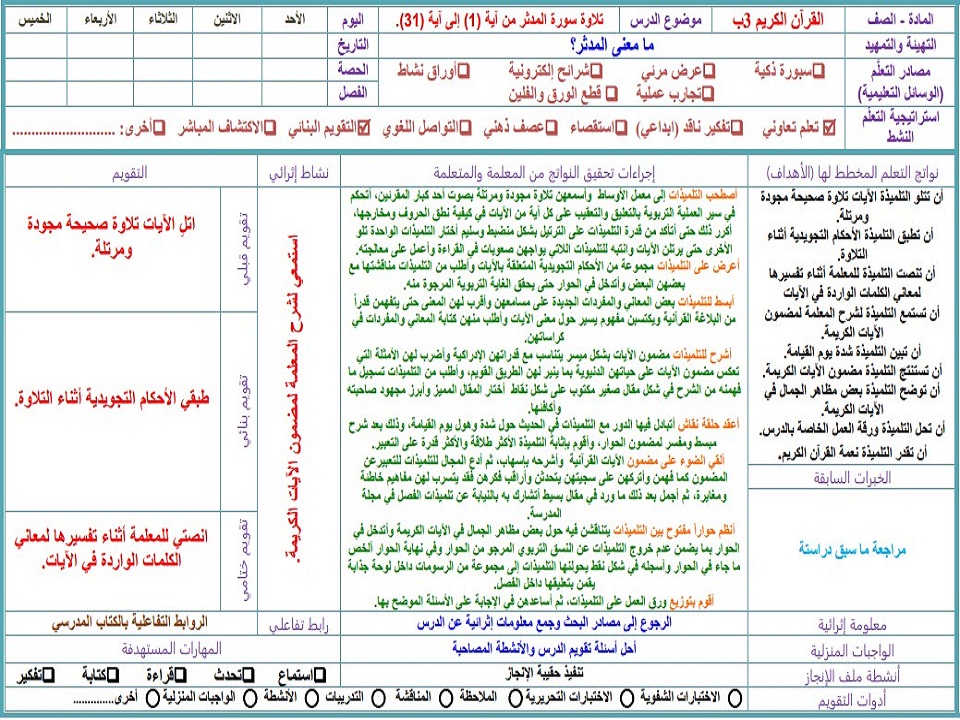 المادة - الصف
القرآن الكريم 3ب
موضوع الدرس
تلاوة سورة المدثر من آية (1) إلى آية (31).
اليوم
الأحد
الاثنين
الثلاثاء
الأربعاء
الخميس
التهيئة والتمهيد
ما معنى المدثر؟
التاريخ
مصادر التعلّم
(الوسائل التعليمية)
❑سبورة ذكية ❑عرض مرئي ❑شرائح إلكترونية ❑أوراق نشاط
❑تجارب عملية ❑ قطع الورق والفلين
الحصة
الفصل
استراتيجية التعلّم
النشط
☑ تعلم تعاوني ❑تفكير ناقد (ابداعي) ❑استقصاء ❑عصف ذهني ❑التواصل اللغوي ☑التقويم البنائي ❑الاكتشاف المباشر ❑أخرى: ............................
نواتج التعلم المخطط لها (الأهداف)
إجراءات تحقيق النواتج من المعلمة والمتعلمة
نشاط إثرائي
التقويم
أن تتلو التلميذة الآيات تلاوة صحيحة مجودة
ومرتلة.
أن تطبق التلميذة الأحكام التجويدية أثناء
التلاوة.
أن تنصت التلميذة للمعلمة أثناء تفسيرها
لمعاني الكلمات الواردة في الآيات
أن تستمع التلميذة لشرح المعلمة لمضمون
الآيات الكريمة.
أن تبين التلميذة شدة يوم القيامة.
أن تستنتج التلميذة مضمون الآيات الكريمة.
أن توضح التلميذة بعض مظاهر الجمال في
الآيات الكريمة.
أن تحل التلميذة ورقة العمل الخاصة بالدرس.
أن تقدر التلميذة نعمة القرآن الكريم.
الخبرات السابقة
مراجعة ما سبق دراستة
أصطحب التلميذات إلى معمل الأوساط وأسمعهن تلاوة مجودة ومرتلة بصوت أحد كبار المقرئين، أتحكم
في سير العملية التربوية بالتعليق والتعقيب على كل آية من الآيات في كيفية نطق الحروف ومخارجها،
أكرر ذلك حتى أتأكد من قدرة التلميذات على الترتيل بشكل منضبط وسليم أختار التلميذات الواحدة تلو
الأخرى حتى يرتلن الآيات وانتبه للتلميذات اللاتي يواجهن صعوبات في القراءة وأعمل على معالجته.
أعرض على التلميذات مجموعة من الأحكام التجويدية المتعلقة بالآيات وأطلب من التلميذات مناقشتها مع
بعضهن البعض وأتدخل في الحوار حتى يحقق الغاية التربوية المرجوة منه.
أبسط للتلميذات بعض المعاني والمفردات الجديدة على مسامعهن وأقرب لهن المعنى حتى يتفهمن قدراً
من البلاغة القرآنية ويكتسبن مفهوم يسير حول معنى الآيات وأطلب منهن كتابة المعاني والمفردات في
كراساتهن.
أشرح للتلميذات مضمون الآيات بشكل ميسر يتناسب مع قدراتهن الإدراكية وأضرب لهن الأمثلة التي
تعكس مضمون الآيات على حياتهن الدنيوية بما ينير لهن الطريق القويم، وأطلب من التلميذات تسجيل ما
فهمنه من الشرح في شكل مقال صغير مكتوب على شكل نقاط أختار المقال المميز وأبرز مجهود صاحبته
وأكافئها.
أعقد حلقة نقاش أتبادل فيها الدور مع التلميذات في الحديث حول شدة وهول يوم القيامة، وذلك بعد شرح
مبسط ومفسر لمضمون الحوار، وأقوم بإثابة التلميذة الأكثر طلاقة والأكثر قدرة على التعبير.
ألقي الضوء على مضمون الآيات القرآنية وأشرحه بإسهاب، ثم أدع المجال للتلميذات للتعبيرعن
المضمون كما فهمن وأتركهن على سجيتهن يتحدثن وأراقب فكرهن فقد يتسرب لهن مفاهيم خاطئة
ومغايرة، ثم أجمل بعد ذلك ما ورد في مقال بسيط أتشارك به بالنيابة عن تلميذات الفصل في مجلة
المدرسة.
أنظم حواراً مفتوح بين التلميذات يتناقشن فيه حول بعض مظاهر الجمال في الآيات الكريمة وأتدخل في
الحوار بما يضمن عدم خروج التلميذات عن النسق التربوي المرجو من الحوار وفي نهاية الحوار ألخص
ما جاء في الحوار وأسجله في شكل نقط يحولنها التلميذات إلى مجموعة من الرسومات داخل لوحة جذابة
يقمن بتعليقها داخل الفصل.
أقوم بتوزيع ورق العمل على التلميذات، ثم أساعدهن في الإجابة على الأسئلة الموضح بها.
استمعي لشرح المعلمة لمضمون الآيات الكريمة.
تقويم قبلي
اتل الآيات تلاوة صحيحة مجودة
ومرتلة.
تقويم بنائي
طبقي الأحكام التجويدية أثناء التلاوة.
تقويم ختامي
انصتي للمعلمة أثناء تفسيرها لمعاني
الكلمات الواردة في الآيات.
معلومة إثرائية
الرجوع إلى مصادر البحث وجمع معلومات إثرائية عن الدرس
رابط تفاعلي
الروابط التفاعلية بالكتاب المدرسي
الواجبات المنزلية
أحل أسئلة تقويم الدرس والأنشطة المصاحبة
المهارات المستهدفة
أنشطة ملف الإنجاز
تنفيذ حقيبة الإنجاز
❑استماع ❑تحدث ❑قراءة ❑كتابة ❑تفكير
أدوات التقويم
الاختبارات الشفوية الاختبارات التحريرية الملاحظة المناقشة التدريبات الأنشطة الواجبات المنزلية أخرى...............